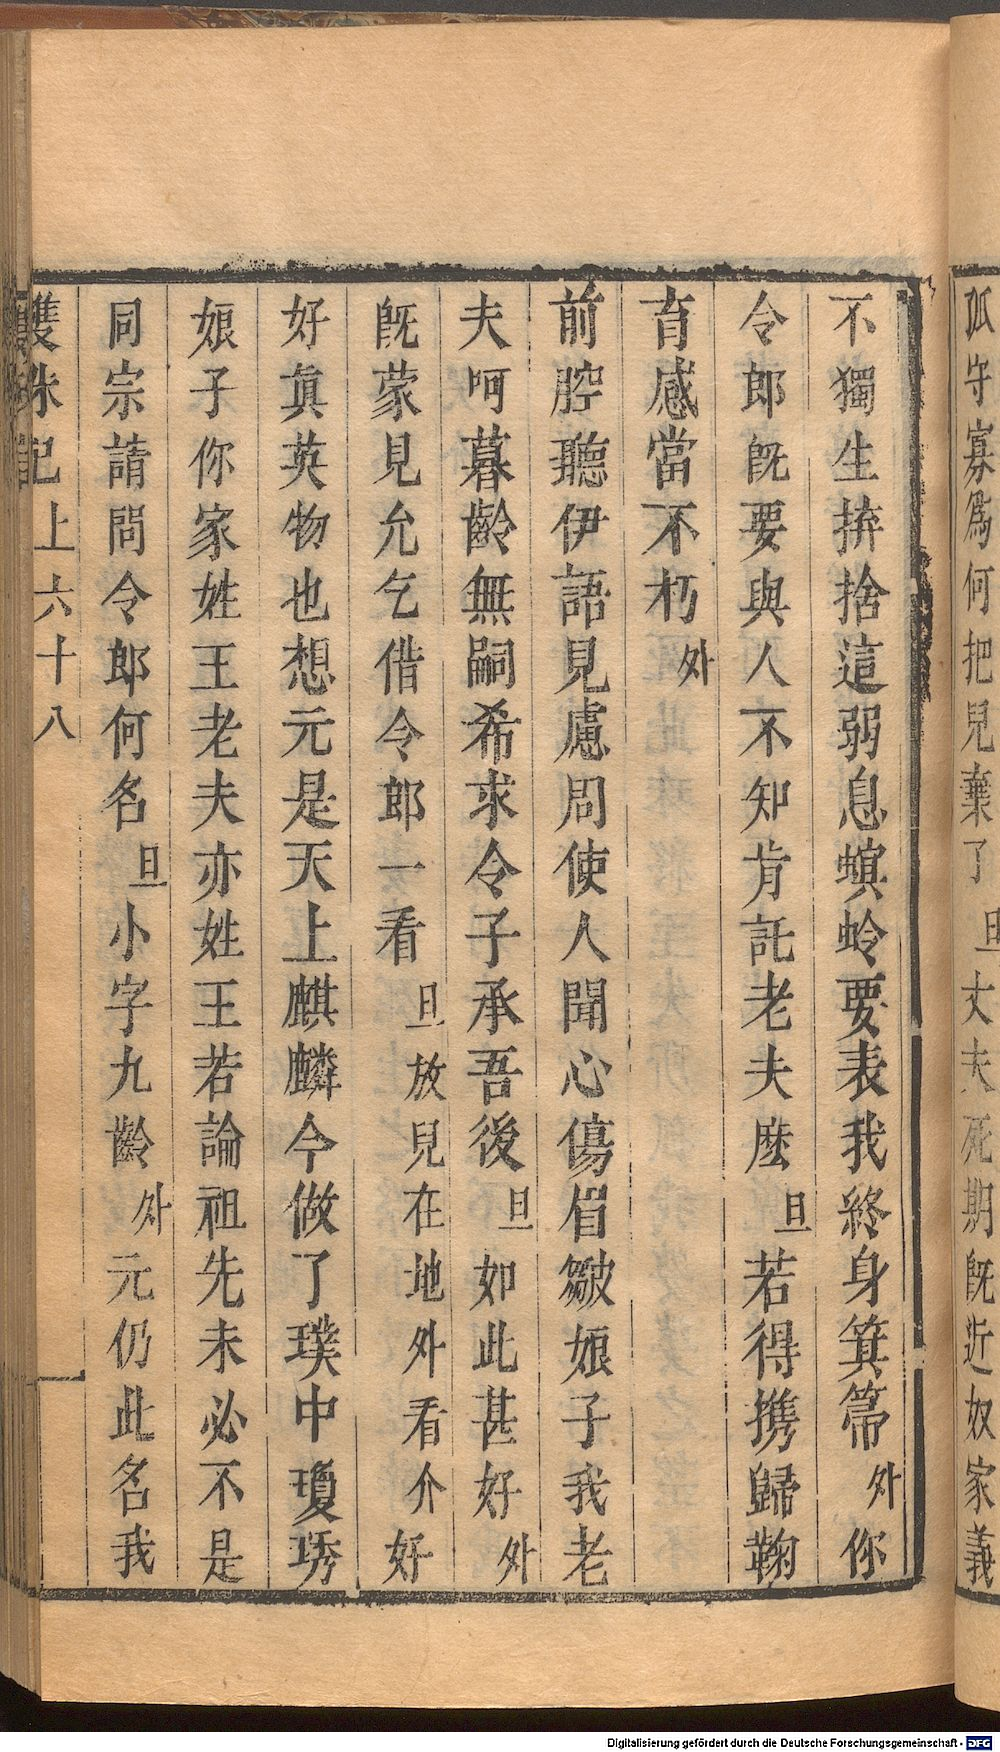 孤守寡爲何把兒棄了 旦 丈夫死期旣近奴家義
不獨生拚捨這弱息螟蛉要表我終身箕箒 外 你
令郎旣要與人不知肯託老夫麽 旦 若得携歸鞠
育感當不朽 外
前腔聽伊語見慮周使人聞心傷眉皺娘子我老
夫呵暮齡無嗣希求令子承吾後 旦 如此甚好 外
旣蒙見允乞借令郎一看 旦 放兒在地外看介好
好眞英物也想元是天上麒麟今做了璞中瓊琇
娘子你家姓王老夫亦姓王若論祖先未必不是
同宗請問令郎何名 旦 小字九齡 外 元仍此名我
雙珠記上六十八
Digitalisierung gefördert durch die Deutsche Forschungsgemeinschaft - DFG